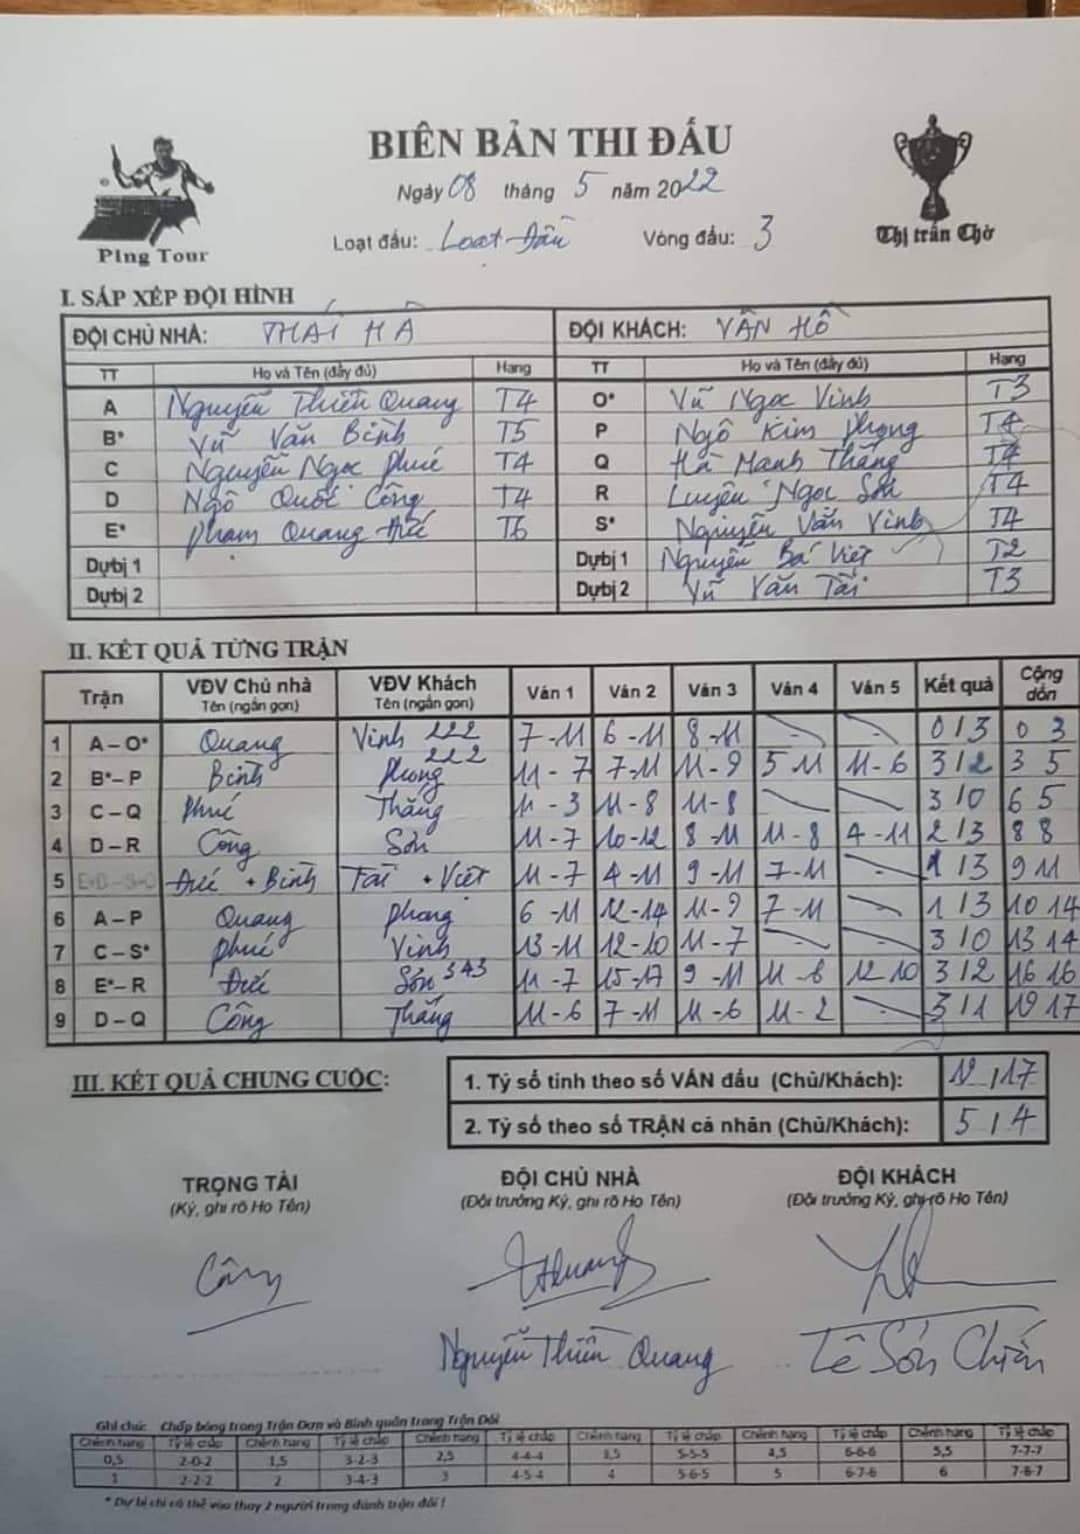 BIÊN BẢN THI ĐẤU
Ngày 08 tháng 5 năm 2022
Ping Tour
Loạt đấu: Loạt Đấu Vòng đấu: 3
Thị trấn Chờ
I. SẮP XẾP ĐỘI HÌNH
ĐỘI CHỦ NHÀ: THÁI HÀ ĐỘI KHÁCH: VÂN HỒ
TT Họ và Tên (đầy đủ) Hạng TT Họ và Tên (đầy đủ) Hạng
A Nguyễn Thiên Quang T4 O* Vũ Ngọc Vinh T3
B* Vũ Văn Bình T5 P Ngô Kim Phong T4
C Nguyễn Ngọc Phúc T4 Q Hà Mạnh Thắng T4
D Ngô Quốc Công T4 R Luyện Ngọc Sơn T4
E* Phạm Quang Đức T6 S* Nguyễn Văn Vinh T4
Dự bị 1 Dự bị 1 Nguyễn Bá Việt T2
Dự bị 2 Dự bị 2 Vũ Văn Tài T3
II. KẾT QUẢ TỪNG TRẬN
Trận VĐV Chủ nhà Tên (ngắn gọn) VĐV Khách Tên (ngắn gọn) Ván 1 Ván 2 Ván 3 Ván 4 Ván 5 Kết quả Cộng dồn
1 A – O* Quang Vinh 222 7-11 6-11 8-11 - - 0/3 0 3
2 B*– P Bình Phong 222 11-7 7-11 11-9 5 11 11-6 3/2 3 5
3 C – Q Phúc Thắng 11-3 11-8 11-8 3/0 6 5
4 D – R Công Sơn 11-7 10-12 8-11 11-8 4-11 2/3 8 8
5 Đức + Bình Tài + Việt 11-7 4-11 9-11 7-11 - 1/3 9 11
6 A – P Quang Phong 6-11 12-14 11-9 7-11 - 1/3 10 14
7 C – S* Phúc Vinh 13-11 12-10 11-7 - - 3/0 13 14
8 E*– R Đức Sơn 343 11-7 15-17 9-11 11-8 12 10 3/2 16 16
9 D – Q Công Thắng 11-6 7-11 11-6 11-2 3/1 19 17
III. KẾT QUẢ CHUNG CUỘC:
1. Tỷ số tính theo số VÁN đấu (Chủ/Khách): 19/17
2. Tỷ số theo số TRẬN cá nhân (Chủ/Khách): 5/4
TRỌNG TÀI ĐỘI CHỦ NHÀ ĐỘI KHÁCH
(Ký, ghi rõ Họ Tên) (Đội trưởng Ký, ghi rõ Họ Tên) (Đội trưởng Ký, ghi rõ Họ Tên)
Nguyễn Thiên Quang Lê Sơn Chiến
Ghi chú: Chấp bóng trong Trận Đơn và Bình quân trong Trận Đôi
Chênh hạng Tỷ lệ chấp Chênh hạng Tỷ lệ chấp Chênh hạng Tỷ lệ chấp Chênh hạng Tỷ lệ chấp Chênh hạng Tỷ lệ chấp Chênh hạng Tỷ lệ chấp
0,5 2-0-2 1,5 3-2-3 2,5 4-4-4 3,5 5-5-5 4,5 6-6-6 5,5 7-7-7
1 2-2-2 2 3-4-3 3 4-5-4 4 5-6-5 5 6-7-6 6 7-8-7
* Dự bị chỉ có thể vào thay 2 người trong đánh trận đôi !